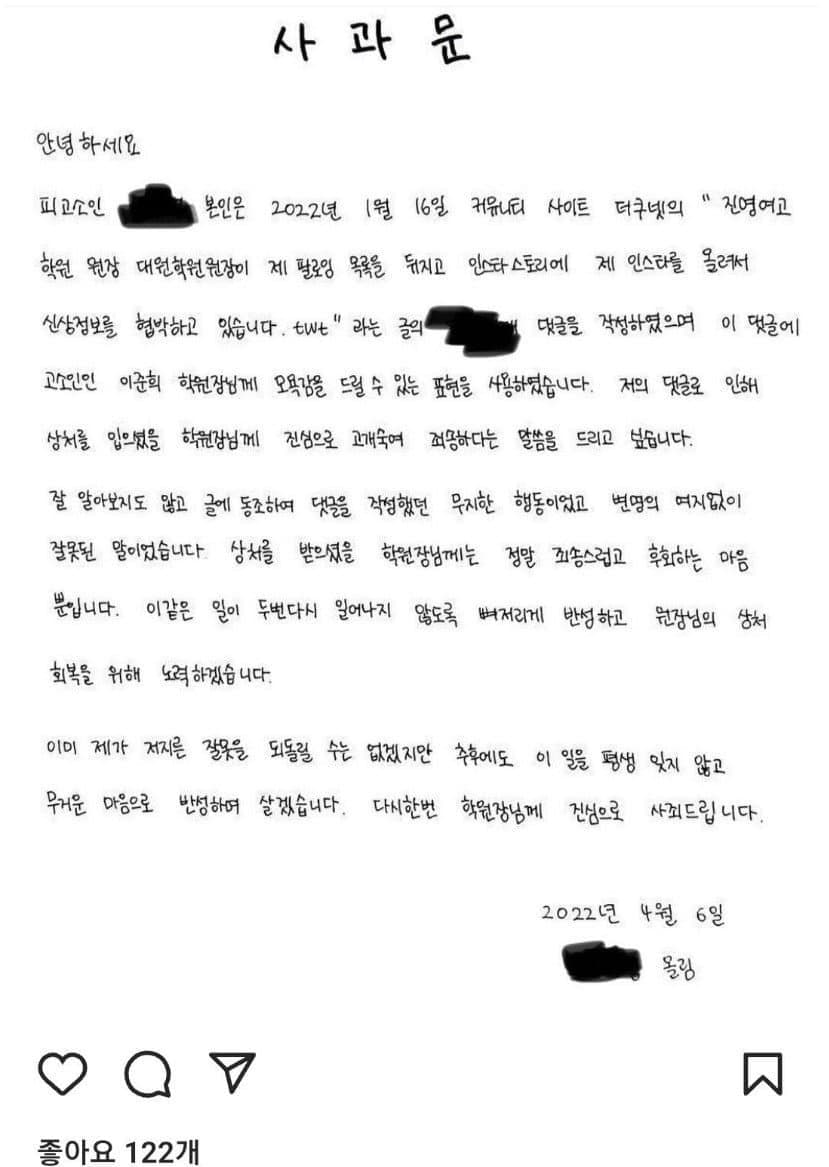 사 과 문
안녕하세요
피고소인 본인은 2022년 1월 16일 커뮤니티 사이트 더쿠넷의 " 진영여고
학원 원장 대원학원원장이 제 팔로잉 목록을 뒤지고 인스타스토리에 제 인스타를 올려서
신상정보를 협박하고 있습니다. twt " 라는 글의 댓글을 작성하였으며 이 댓글에
고소인인 이준희 학원장님께 모욕감을 드릴 수 있는 표현을 사용하였습니다. 저의 댓글로 인해
상처를 입으셨을 학원장님께 진심으로 고개숙여 죄송하다는 말씀을 드리고 싶습니다.
잘 알아보지도 않고 글에 동조하여 댓글을 작성했던 무지한 행동이었고 변명의 여지없이
잘못된 말이었습니다. 상처를 받으셨을 학원장님께는 정말 죄송스럽고 후회하는 마음
뿐입니다. 이같은 일이 두번다시 일어나지 않도록 뼈저리게 반성하고 원장님의 상처
회복을 위해 노력하겠습니다.
이미 제가 저지른 잘못을 되돌릴 수는 없겠지만 추후에도 이 일을 평생 잊지 않고
무거운 마음으로 반성하며 살겠습니다. 다시한번 학원장님께 진심으로 사죄드립니다.
2022년 4월 6일
올림
좋아요 122개